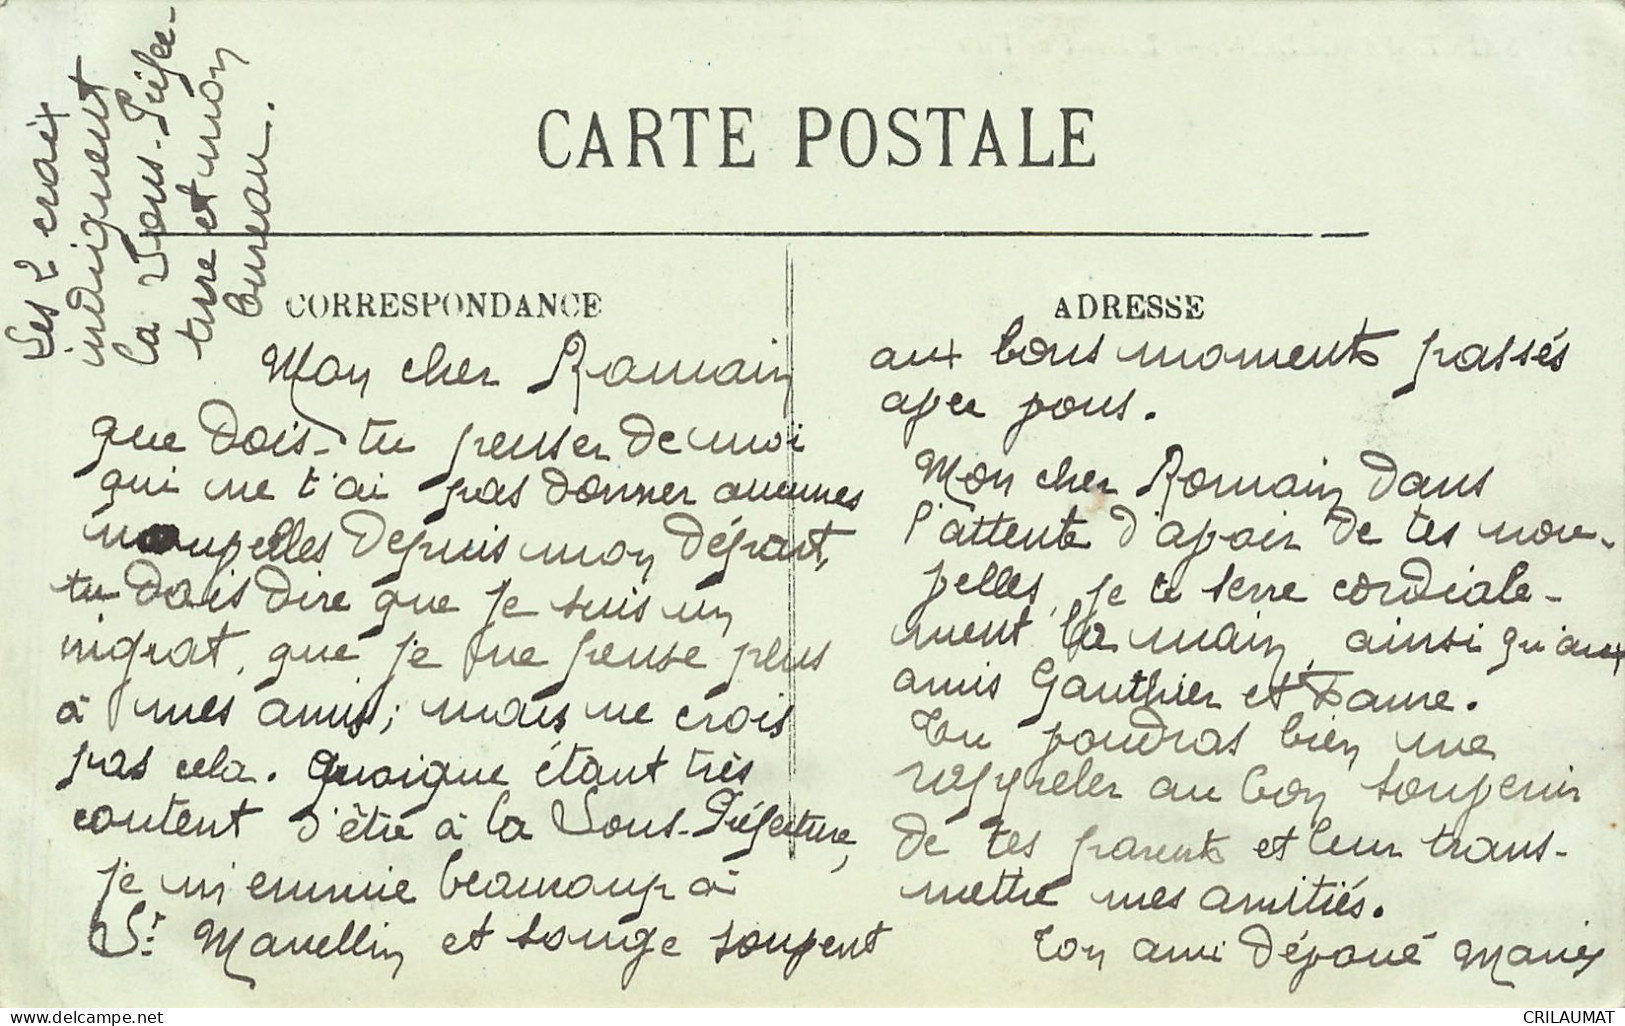 Les 2 croix
indiquent
la Sous-Préfec-
ture et mon
bureau.
CARTE POSTALE
CORRESPONDANCE
Mon cher Romain
que dois-tu penser de moi
qui ne t'ai pas donner aucunes
nouvelles depuis mon départ,
tu dois dire que je suis un
ingrat, que je ne pense plus
à mes amis; mais ne crois
pas cela. Quoique étant très
content d'être à la Sous-Préfecture,
je m'ennuie beaucoup à
St Marcellin et songe souvent
ADRESSE
aux bons moments passés
avec vous.
Mon cher Romain dans
l'attente d'avoir de tes nou-
velles, je te serre cordiale-
ment la main, ainsi qu'aux
amis Gauthier et Faure.
Tu voudras bien me
rappeler au bon souvenir
de tes parents et leur trans-
mettre mes amitiés.
Ton ami dévoué
www.delcampe.net
CRILAUMAT